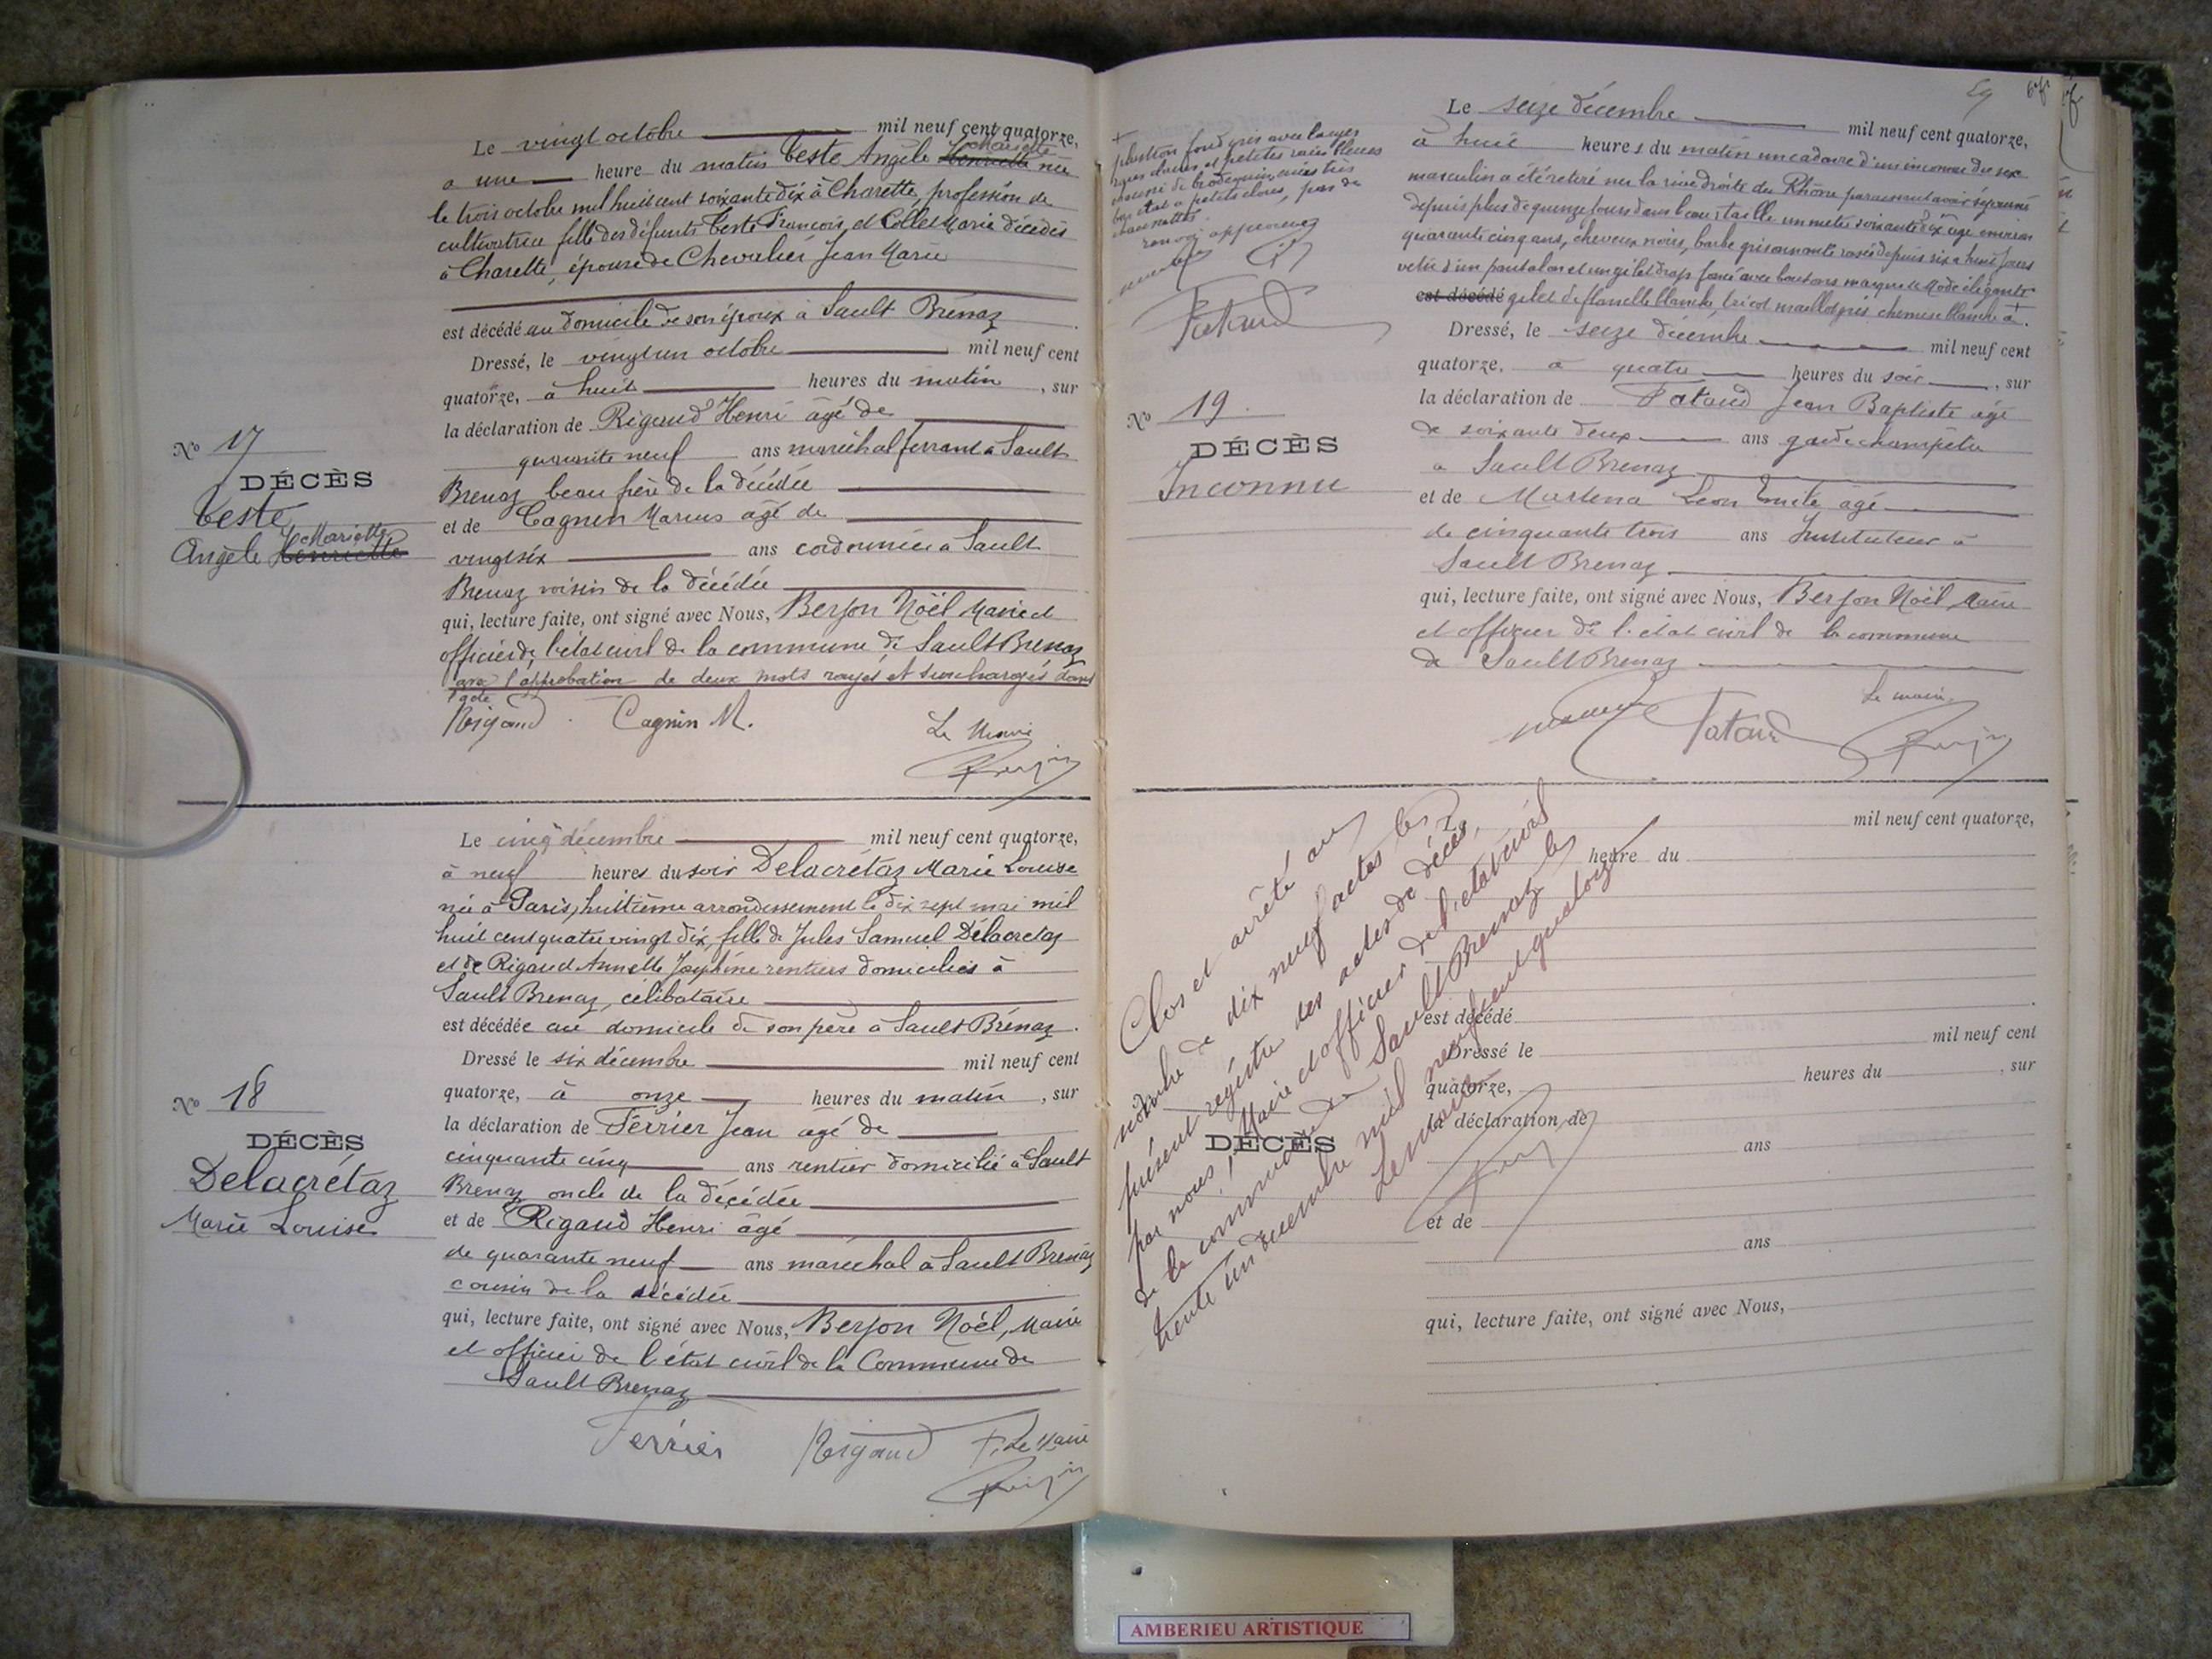 Le vingt octobre mil neuf cent quatorze,
a une heure du matin Teste Angèle Henriette Mariette née
le trois octobre mil huit cent soixante dix à Charette, profession de
cultivatrice fille des défunts Teste François et Collet Marie décédés
à Charette, épouse de Chevalier Jean Marie
est décédé au domicile de son époux à Sault Brénaz
Dressé, le vingt un octobre mil neuf cent
quatorze, à huit heures du matin, sur
la déclaration de Rigaud Henri âgé de
quarante neuf ans maréchal ferrant à Sault
Brenaz beau frère de la décédée
et de Cagnin Marius âgé de
vingt six ans cordonnier à Sault
Brenaz voisin de la décédée
qui, lecture faite, ont signé avec Nous, Berjon Noël Maire et
officier de l'état civil de la commune de Sault Brenaz
avec l'approbation de deux mots rayés et surchargés dans
l'acte
Rigaud Cagnin M. Le Maire
Nº 17
DÉCÈS
Teste
Angèle Henriette Mariette
Le cinq décembre mil neuf cent quatorze,
à neuf heures du soir Delacrétaz Marie Louise
née à Paris, huitième arrondissement le dix sept mai mil
huit cent quatre vingt dix, fille de Jules Samuel Délacretaz
et de Rigaud Annette Joséphine rentiers domiciliés à
Sault Brenaz, célibataire
est décédée au domicile de son père à Sault Brénaz.
Dressé le six décembre mil neuf cent
quatorze, à onze heures du matin, sur
la déclaration de Ferrier Jean agé de
cinquante cinq ans rentier domicilié à Sault
Brenaz oncle de la décédée
et de Rigaud Henri âgé
de quarante neuf ans maréchal à Sault Brenaz
cousin de la décédée
qui, lecture faite, ont signé avec Nous, Berjon Noël, Maire
et officier de l'état civil de la Commune de
Sault Brenaz
Ferrier Rigaud Le Maire
Nº 18
DÉCÈS
Delacrétaz
Marie Louise
59
Le seize décembre mil neuf cent quatorze,
à huit heures du matin un cadavre d'un inconnu du sexe
masculin a été retiré sur la rive droite du Rhône paraissant avoir séjourné
depuis plus de quinze jours dans l'eau, taille un mètre soixante dix âge environ
quarante cinq ans, cheveux noirs, barbe grisonnante rasée depuis six à huit jours
vêtu d'un pantalon et un gilet drap foncé avec boutons marque Mode élégante
est décédé gilet de flanelle blanche, tricot maillot gris chemise blanche à +.
Dressé, le seize décembre mil neuf cent
quatorze, à quatre heures du soir, sur
la déclaration de Pataud Jean Baptiste agé
de soixante deux ans garde champêtre
à Sault Brenaz
et de Léon agé
de cinquante trois ans Instituteur à
Sault Brenaz
qui, lecture faite, ont signé avec Nous, Berjon Noël, Maire
et officier de l'état civil de la commune
de Sault Brenaz
Pataud Le maire
+
plastron fond gris avec larges
raies claires et petites raies bleues
chaussé de brodequins cuirs très
bon état à petits clous, pas de
chaussettes.
renvoi approuvé
Pataud
Nº 19
DÉCÈS
Inconnu
mil neuf cent quatorze,
heure du
est décédé
Dressé le mil neuf cent
quatorze, heures du , sur
la déclaration de
ans
et de
ans
qui, lecture faite, ont signé avec Nous,
DÉCÈS
Clos et arrêté au
nombre de dix neuf actes le
présent registre des actes de décès,
par nous, Maire et officier de l'état civil
de la commune de Sault Brenaz le
trente un décembre mil neuf cent quatorze
Le maire
AMBERIEU ARTISTIQUE